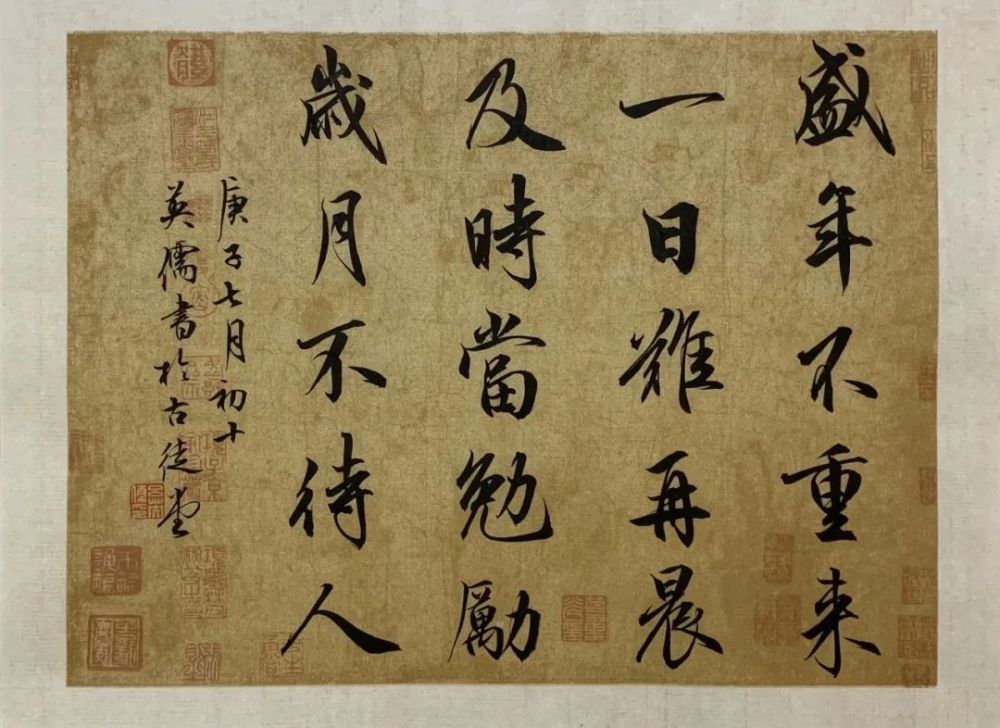 盛年不重来
一日難再晨
及時當勉勵
歲月不待人
庚子七月初十
英儒書於古徒堂